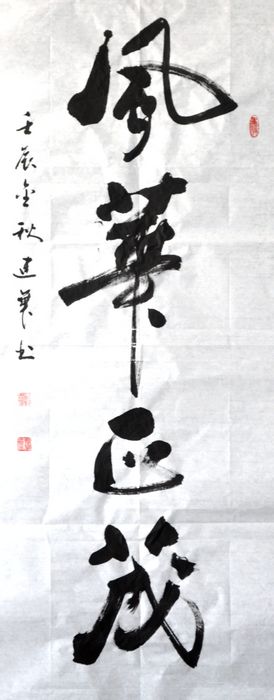 風華正茂
壬辰金秋建華书